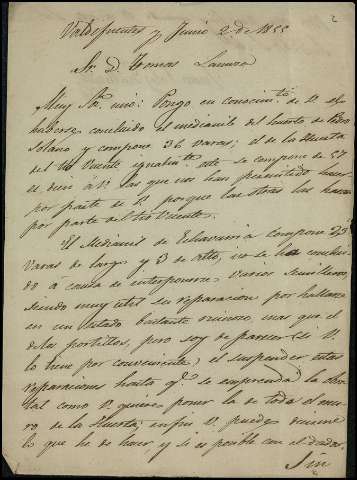 2
Valdefuentes y Junio 2 de 1855
Sr. D. Tomas
Muy Sr. mio: Pongo en conocimto. de V. el
haberse concluido el medianil del huerto de Pedro
Solano y compone 36 varas; el de la Huerta
del tio Vicente igualmte. este se compone de 57
es decir á V. las que nos han permitido hacer
por parte de V. porque las otras las hacen
por parte del tio Vicente.
El Medianil de Echavarria compone 25
varas de largo y 3 de alto, no se ha conclui-
do á causa de interponerse varios
siendo muy util su reparacion por hallarse
en un estado bastante ruinoso, mas que el
de los portillos, pero soy de parecer (si V.
lo tiene por conveniente) el suspender estas
reparaciones hasta qe. se emprenda la
tal como V. quiere poner la de toda el mu-
ro de la Huerta; en fin V. puede decirme
lo que he de hacer, y si es posible con el dador.
Sin